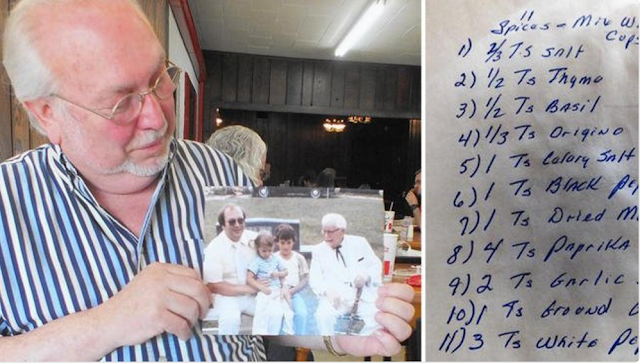 11
Spices - Mix W
Cup
1) 2/3 Ts SAlt
2) 1/2 Ts Thyme
3) 1/2 Ts BASil
4) 1/3 Ts Origino
5) 1 Ts Celary SAlt
6) 1 Ts BlAck Pe
7) 1 Ts Dried M
8) 4 Ts PAprikA
9) 2 Ts GArlic
10) 1 Ts Ground
11) 3 Ts White Pe